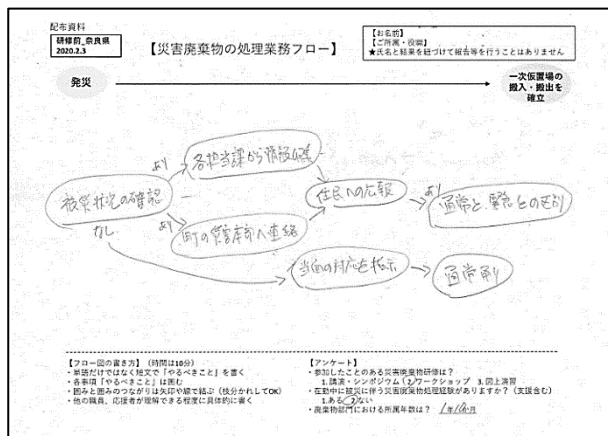 配布資料
研修前_奈良県
2020.2.3
【災害廃棄物の処理業務フロー】
【お名前】
【ご所属・役職】
★氏名と結果を紐づけて報告等を行うことはありません
発災
一次仮置場の
搬入・搬出を
確立
あり
各担当課から情報収集
被災状況の確認
住民への広報
あり
通常と、緊急との区別
なし
あり
町の災害本部へ連絡
当面の対応を指示
通常通り
【フロー図の書き方】(時間は10分)
・単語だけではなく短文で「やるべきこと」を書く
・各事項「やるべきこと」は囲む
・囲みと囲みのつながりは矢印や線で結ぶ(枝分かれしてOK)
・他の職員、応援者が理解できる程度に具体的に書く
【アンケート】
・参加したことのある災害廃棄物研修は?
1. 講演・シンポジウム 2. ワークショップ 3. 図上演習
・在勤中に被災に伴う災害廃棄物処理経験がありますか?(支援含む)
1. ある 2. ない
・廃棄物部門における所属年数は? 1年10か月